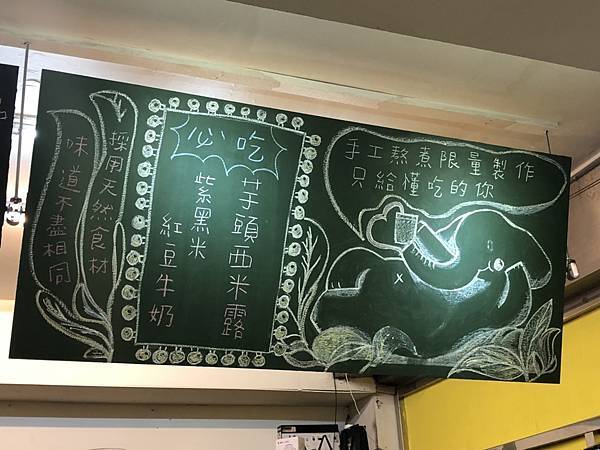 採用天然食材
味道不盡相同
必吃
芋頭西米露
紫黑米
紅豆牛奶
手工熬煮限量製作
只給懂吃的你